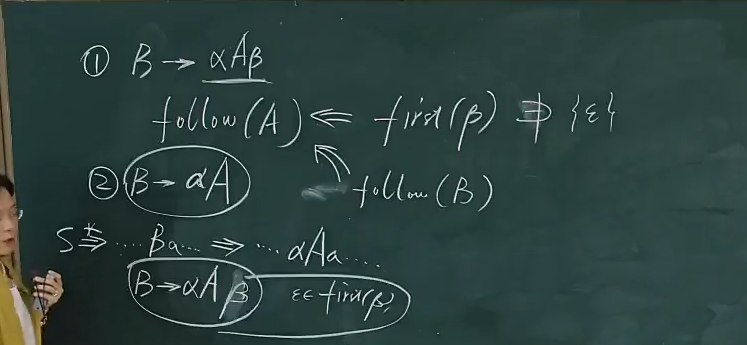 ① B → αAβ
follow(A) ⇐ first(β) ∌ {ε}
② B → αA
follow(B)
S ⇒* ....Ba.... ⇒ ....αAa.....
B → αAβ ε∈first(β)